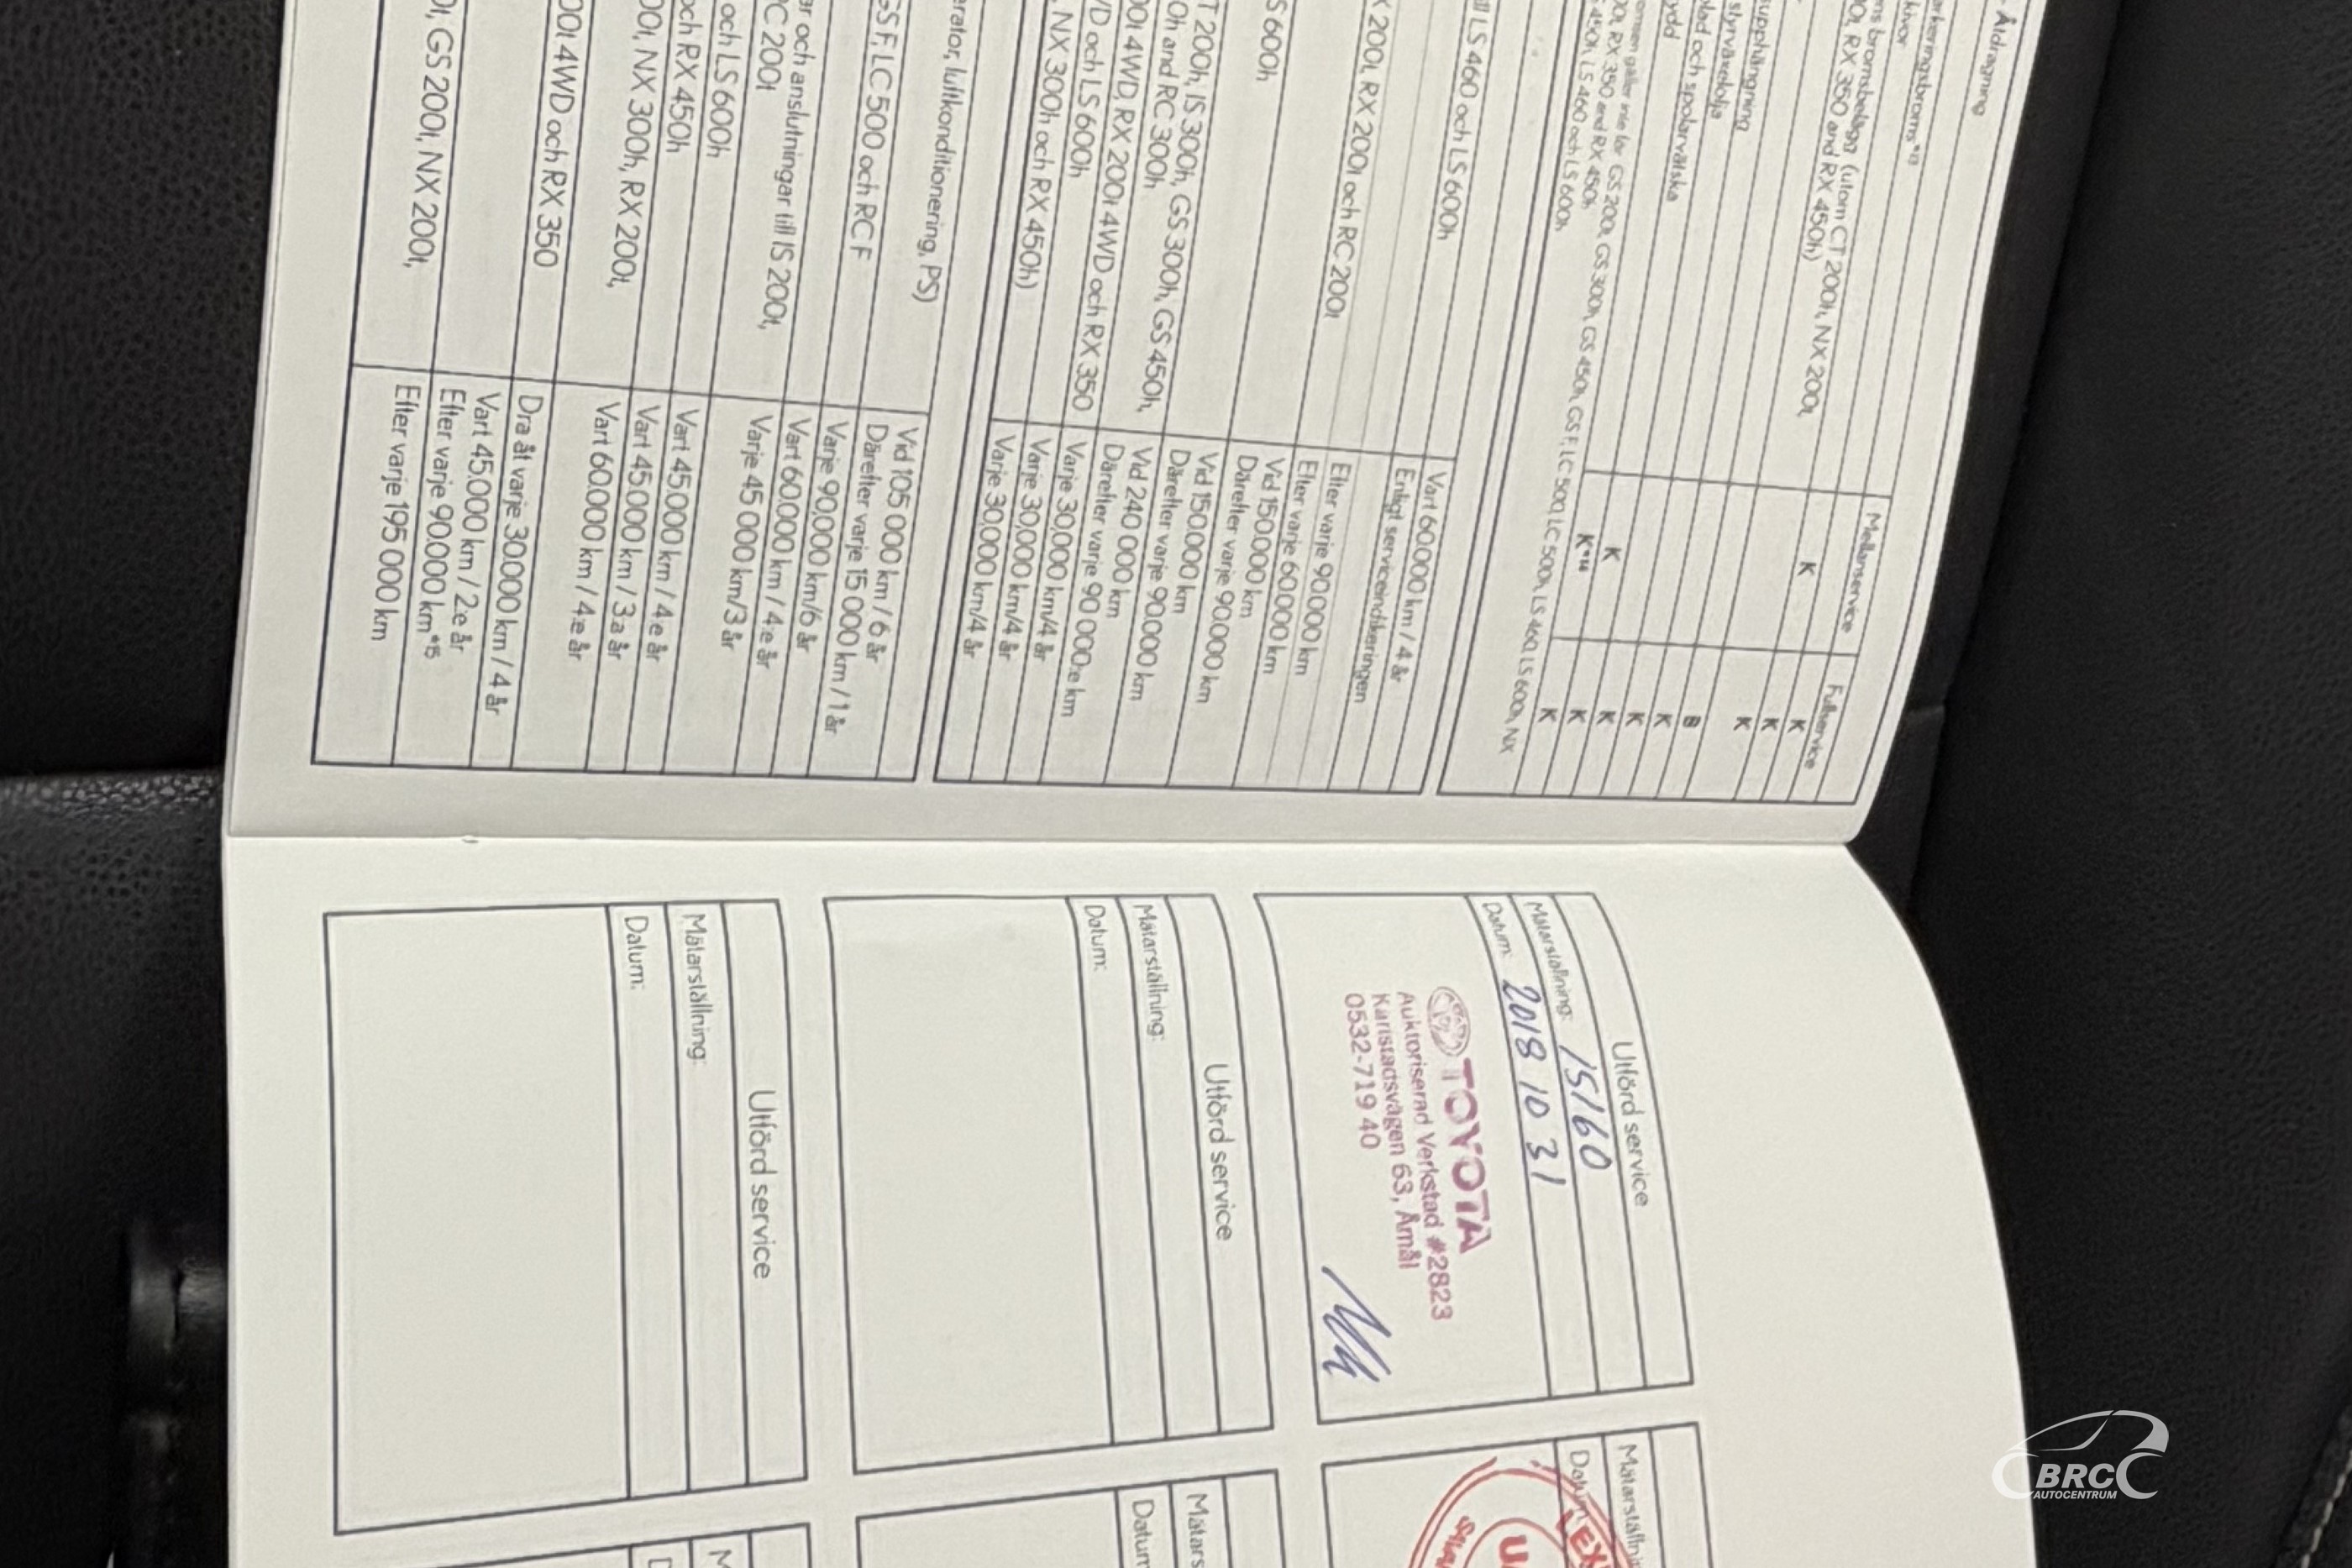 - Åldragning
arkeringsbroms*13
kivor
ns bromsbelägg (utom CT 200h, NX 200t,
00t, RX 350 and RX 450h)
supphängning
styrväxelolja
blad och spolarvätska
ydd
omsen gäller inte för GS 200t, GS 300h, GS 450h, GS F, LC 500, LC 500h, LS 460, LS 600h, NX
00t, RX 350 and RX 450h
450h, LS 460 och LS 600h
Mellanservice
Fullservice
K
K
K*14
K
K
K
B
K
K
K
K
K
K
ill LS 460 och LS 600h
Vart 60.000 km / 4 år
Enligt serviceindikeringen
X 200t, RX 200t och RC 200t
Efter varje 90.000 km
Efter varje 60.000 km
S 600h
Vid 150.000 km
Därefter varje 90.000 km
T 200h, IS 300h, GS 300h, GS 450h,
0h and RC 300h
Vid 150.000 km
Därefter varje 90.000 km
00t 4WD, RX 200t 4WD och RX 350
Vid 240 000 km
Därefter varje 90 000:e km
/D och LS 600h
Varje 30,000 km/4 år
, NX 300h och RX 450h)
Varje 30,000 km/4 år
Varje 30,000 km/4 år
erator, luftkonditionering, PS)
Vid 105 000 km / 6 år
Därefter varje 15 000 km / 1 år
GS F, LC 500 och RC F
Varje 90,000 km/6 år
ar och anslutningar till IS 200t,
C 200t
Vart 60.000 km / 4:e år
och LS 600h
Varje 45 000 km/3 år
och RX 450h
Vart 45.000 km / 4:e år
00t, NX 300h, RX 200t,
Vart 45.000 km / 3:a år
Vart 60.000 km / 4:e år
00t 4WD och RX 350
Dra åt varje 30.000 km / 4 år
Vart 45.000 km / 2:e år
Efter varje 90.000 km*15
0t, GS 200t, NX 200t,
Efter varje 195 000 km
Utförd service
Mätarställning: 15160
Datum: 2018 10 31
TOYOTA
Auktoriserad Verkstad #2823
Karlstadsvägen 63, Åmål
0532-719 40
Utförd service
Mätarställning:
Datum:
Utförd service
Mätarställning:
Datum:
Mätarställnin
Datum
LEX
Mätars
Datum
M
D
BRC
AUTOCENTRUM